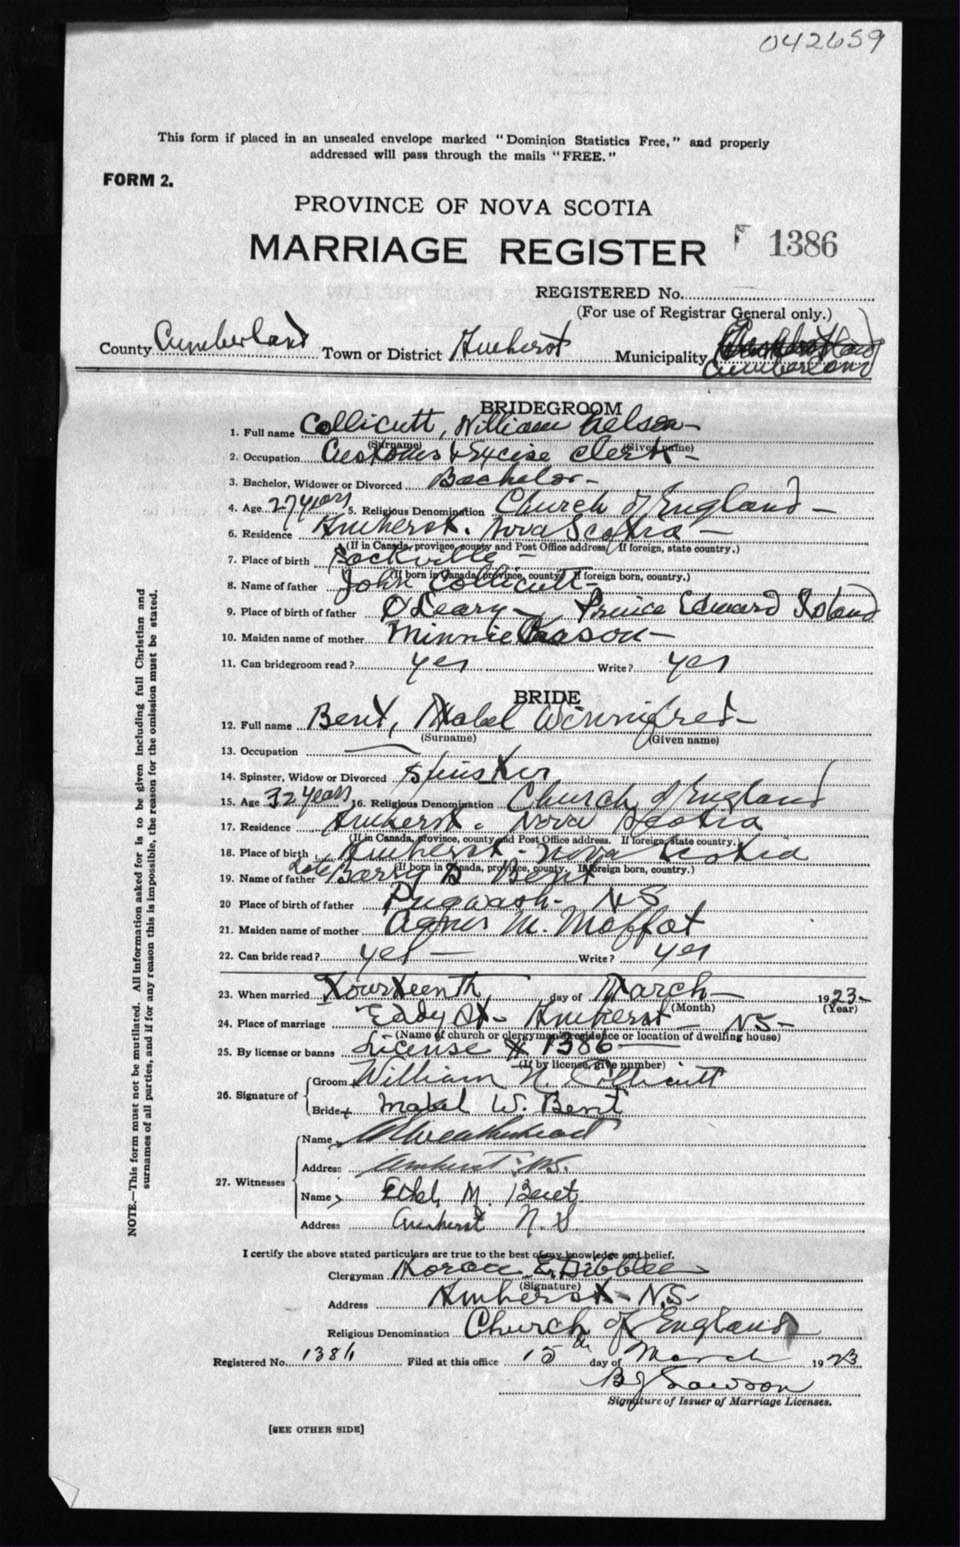 042659
This form if placed in an unsealed envelope marked "Dominion Statistics Free," and properly
addressed will pass through the mails "FREE."
FORM 2.
PROVINCE OF NOVA SCOTIA
MARRIAGE REGISTER F 1386
REGISTERED No.
(For use of Registrar General only.)
County Cumberland Town or District Amherst Municipality Cumberland
BRIDEGROOM
1. Full name Collicutt, William Nelson
(Surname) (Given name)
2. Occupation Customs & Excise Clerk
3. Bachelor, Widower or Divorced Bachelor
4. Age 27 years 5. Religious Denomination Church of England
6. Residence Amherst. Nova Scotia
(If in Canada, province, county and Post Office address. If foreign, state country.)
7. Place of birth Sackville
(If born in Canada, province, county. If foreign born, country.)
8. Name of father John Collicutt
9. Place of birth of father O'Leary Prince Edward Island
10. Maiden name of mother Minnie
11. Can bridegroom read? yes Write? yes
BRIDE
12. Full name Bent, Mabel Winnifred
(Surname) (Given name)
13. Occupation
14. Spinster, Widow or Divorced Spinster
15. Age 32 years 16. Religious Denomination Church of England
17. Residence Amherst. Nova Scotia
(If in Canada, province, county and Post Office address. If foreign, state country.)
18. Place of birth Amherst. Nova Scotia
(If born in Canada, province, county. If foreign born, country.)
19. Name of father late B Bent
20 Place of birth of father Pugwash - N S
21. Maiden name of mother Agnes M. Moffat
22. Can bride read? yes Write? yes
23. When married Fourteenth day of March 1923
(Month) (Year)
24. Place of marriage Eddy St. Amherst NS
(Name of church or clergyman's residence or location of dwelling house)
25. By license or banns License # 1386
(If by license, give number)
26. Signature of Groom William N. Collicutt
Bride Mabel W. Bent
27. Witnesses Name Weatherhead
Address Amherst N.S.
Name Ethel M. Bent
Address Amherst N. S.
I certify the above stated particulars are true to the best of my knowledge and belief.
Clergyman Horace E. Dibblee
(Signature)
Address Amherst N.S.
Religious Denomination Church of England
Registered No. 1386 Filed at this office 15th day of March 1923
B J Lawson
Signature of Issuer of Marriage Licenses.
[SEE OTHER SIDE]
NOTE.—This form must not be mutilated. All information asked for is to be given including full Christian and
surnames of all parties, and if for any reason this is impossible, the reason for the omission must be stated.